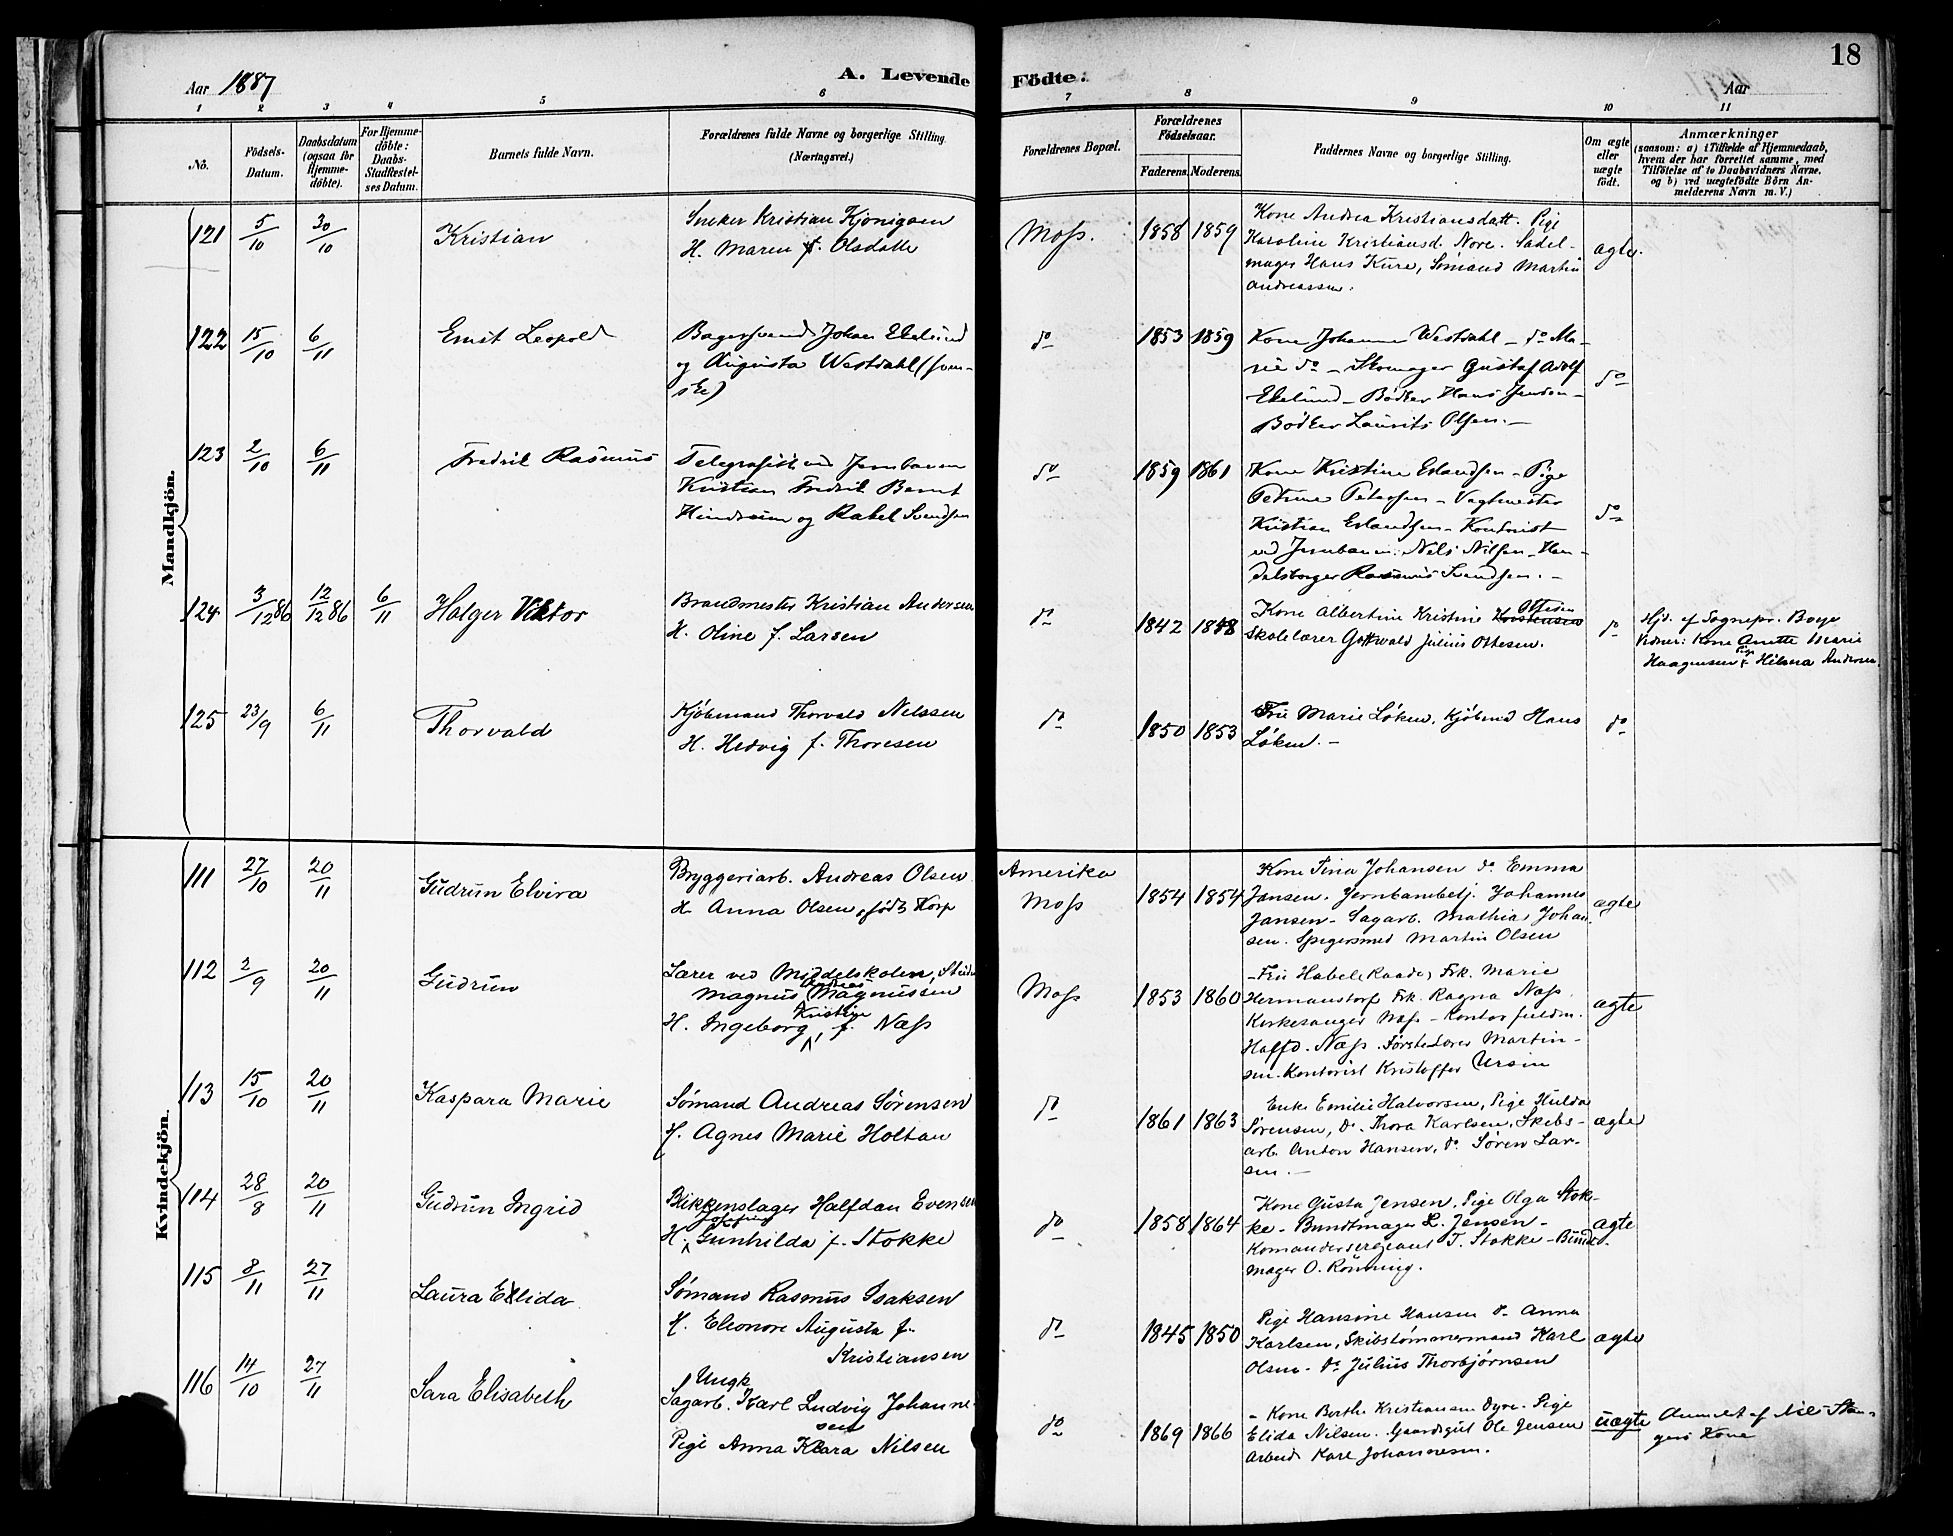 18
Aar 1887
A. Levende Födte.
Aar
1 2 3 4 5 6 7 8 9 10 11
No.
Födsels-Datum.
Daabsdatum (ogsaa for Hjemme-döbte).
For Hjemme-döbte: Daabs-Stadfæstel-ses Datum.
Barnets fulde Navn.
Forældrenes fulde Navne og borgerlige Stilling.
(Næringsvei.)
Forældrenes Bopæl.
Forældrenes Födselsaar.
Faderens. Moderens.
Faddernes Navne og borgerlige Stilling.
Om ægte eller uægte födt.
Anmærkninger
(saasom: a) i Tilfælde af Hjemmedaab,
hvem der har forrettet samme, med
Tilföielse af to Daabsvidners Navne,
og b) ved uægtefödte Börn An-
melderens Navn m. V.)
Mandkjön.
121 5/10 30/10 Kristian
Sneker Kristian Kjönigsen
H. Maren f. Olsdatte
Moss. 1858 1859
Kone Andrea Kristiansdatt. Pige
Karoline Kristiansd. Nore. Sadel-
mager Hans Kure, Sømand Martin
Andreassen.
ægte.
122 15/10 6/11 Ernst Leopold
Bagersvend Johan Ekelund
og Augusta Westdahl (sven-
ske)
do 1853 1859
Kone Johanne Westdahl - do Ma-
rie do - Skomager Gustaf Adolf
Ekelund - Bødker Hans Jensen -
Bødker Laurits Olsen. -
do
123 2/10 6/11 Fredrik Rasmus
Telegrafist ved Jernbanen
Kristian Fredrik Bernt
Hindrum og Rakel Svendsen
do 1859 1861
Kone Kristine Erlandsen - Pige
Petrine Petersen - Vagtmester
Kristian Erlandsen - Kontorist
ved Jernbanen: Nels Nilsen - Han-
delsborger Rasmus Svendsen. -
do
124 3/12 86 12/12 86 6/11 Holger Viktor
Brandmester Kristian Andersen
H. Oline f. Larsen
do 1842 1848
Kone Albertine Kristine Ottesen
Skolelærer Gottwald Julius Ottesen.
do
Hjd. af Sognepr. Boye
Vidner: Kone Anette Marie
Haagensen & Pige Hilma Andersen
125 23/9 6/11 Thorvald
Kjöbmand Thorvald Nelssen
H. Hedvig f. Thoresen
do 1850 1853
Fru Marie Løken, Kjöbmd Hans
Løken. -
do
Kvindekjön.
111 27/10 20/11 Gudrun Elvira
Bryggeriarb. Andreas Olsen
H. Anna Olsen, født Korp
Amerika
Moss 1854 1854
Kone Tina Johansen do Emma
Jansen. Jernbanebetj. Johannes
Jansen - Sagarb. Mathias Johan-
sen. Spigersmed Martin Olsen
ægte
112 2/9 20/11 Gudrun
Lærer ved Middelskolen, Stud.
Magnus Andreas Magnussen
H. Ingeborg Kristine f. Næss
Moss 1853 1860
- Fru Habele Raade, Frk. Marie
Hermanstorf Frk. Ragna Næss
Kirkesanger Næss - Kontorfuldm.
Halfd. Næss. Førstelærer Martin-
sen. Kontorist Kristoffer Ursin
ægte
113 15/10 20/11 Kaspara Marie
Sømand Andreas Sørensen
H. Agnes Marie Holtan
do 1861 1863
Enke Emilie Halvorsen, Pige Hulda
Sørensen, do. Thora Karlsen, Skibs-
arb. Anton Hansen, do Søren Lar-
sen. -
ægte
114 28/8 20/11 Gudrun Ingrid
Blikkenslager Halfdan Evensen
H. Gunhilda f. Stokke
do 1858 1864
Kone Gusta Jensen, Pige Olga Stok-
ke - Bundtmager L. Jensen -
Komandersergeant T. Stokke - Bundt-
mager O. Rønning.
ægte
115 8/11 27/11 Laura Elida
Sømand Rasmus Isaksen
H. Eleonore Augusta f.
Kristiansen
do 1845 1850
Pige Hansine Hansen do Anna
Karlsen, Skibstømmermand Karl
Olsen - do Julius Thorbjørnsen
ægte
116 14/10 27/11 Sara Elisabeth
Ungk.
Sagarb. Karl Ludvig Johanne-
sen
Pige Anna Klara Nilsen
do 1869 1866
- Kone Berthe Kristiansen Dyre. Pige
Elida Nilsen. Gaardsgut Ole Jensen
Arbeid. Karl Johannesen.
uægte
Anmeldt af Nils Stan-
gers Kone